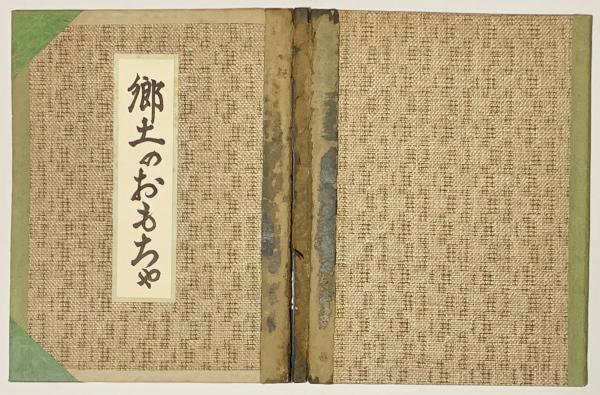 郷土のおもちゃ